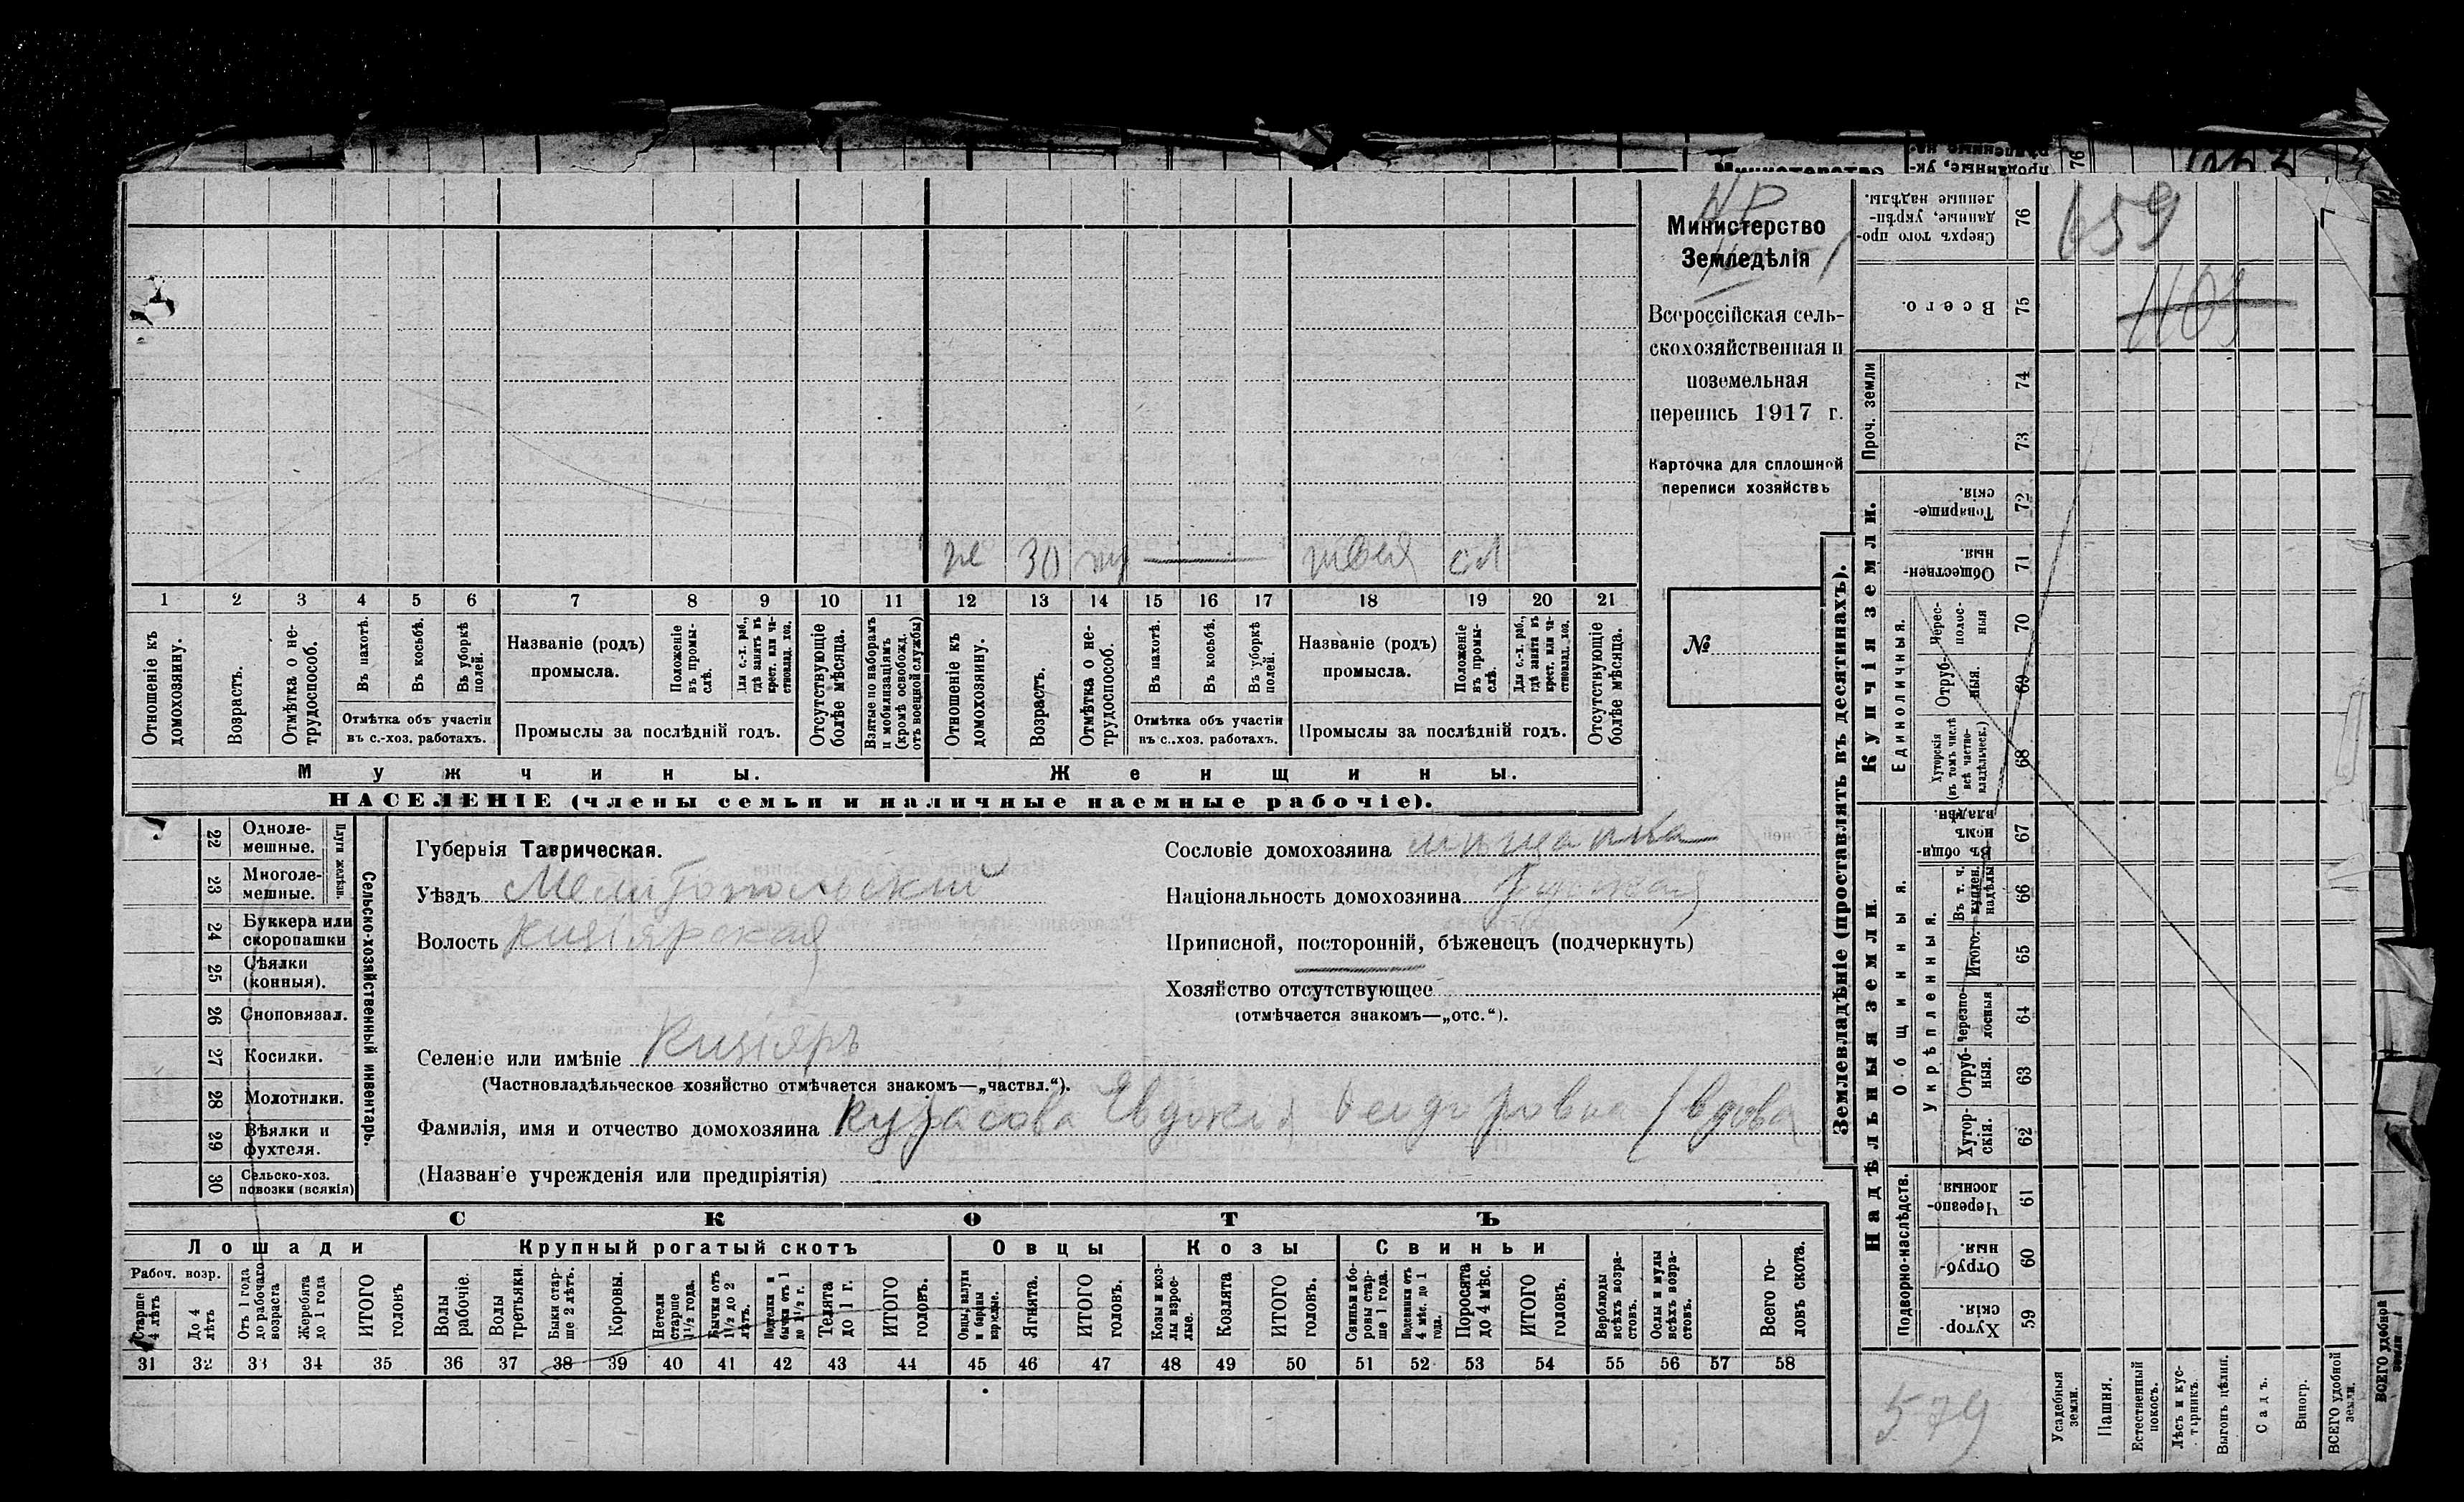 Министерство
Земледѣлія
Всероссійская сель-
скохозяйственная и
поземельная
перепись 1917 г.
Карточка для сплошной
переписи хозяйствъ
№
659
1109
30 швея
1 2 3 4 5 6 7 8 9 10 11 12 13 14 15 16 17 18 19 20 21
Отношеніе къ домохозяину.
Возрастъ.
Отмѣтка о не-трудоспособ.
Въ пахотѣ.
Въ косьбѣ.
Въ уборкѣ полей.
Отмѣтка объ участіи
въ с.-хоз. работахъ.
Названіе (родъ)
промысла.
Положеніе въ промы-слѣ.
Для с.-х. раб., гдѣ занятъ въ крест. или ча-стновлад. хоз.
Промыслы за послѣдній годъ.
Отсутствующіе болѣе мѣсяца.
Взятые по наборамъ и мобилизаціямъ (кромѣ освобожд. отъ военной службы)
Отношеніе къ домохозяину.
Возрастъ.
Отмѣтка о не-трудоспособ.
Въ пахотѣ.
Въ косьбѣ.
Въ уборкѣ полей.
Отмѣтка объ участіи
въ с.-хоз. работахъ.
Названіе (родъ)
промысла.
Положеніе въ промы-слѣ.
Для с.-х. раб., гдѣ занята въ крест. или ча-стновлад. хоз.
Промыслы за послѣдній годъ.
Отсутствующіе болѣе мѣсяца.
Мужчины. Женщины.
НАСЕЛЕНІЕ (члены семьи и наличные наемные рабочіе).
Сельско-хозяйственный инвентарь.
Плуги желѣзн.
22 Одноле-мешные.
23 Многоле-мешные.
24 Буккера или скоропашки
25 Сѣялки (конныя).
26 Сноповязал.
27 Косилки.
28 Молотилки.
29 Вѣялки и фухтеля.
30 Сельско-хоз. повозки (всякія)
Губернія Таврическая.
Уѣздъ Мелитопольскій
Волость Кизіярская
Селеніе или имѣніе Кизіяръ
(Частновладѣльческое хозяйство отмѣчается знакомъ—„частвл.“).
Фамилія, имя и отчество домохозяина Евдокія Феодоровна /вдова
(Названіе учрежденія или предпріятія)
Сословіе домохозяина мѣщанка
Національность домохозяина
Приписной, посторонній, бѣженецъ (подчеркнуть)
Хозяйство отсутствующее
(отмѣчается знакомъ—„отс.“).
СКОТЪ
Лошади Крупный рогатый скотъ Овцы Козы Свиньи
Рабоч. возр.
Старше 4 лѣтъ
До 4 лѣтъ
Отъ 1 года до рабочаго возраста
Жеребята до 1 года
ИТОГО головъ
Волы рабочіе.
Волы третьяки.
Быки стар-ше 2 лѣтъ.
Коровы.
Нетели старше 1½ года.
Бычки отъ 1½ до 2 лѣтъ.
Подтелки и бычки отъ 1 до 1½ г.
Телята до 1 г.
ИТОГО головъ.
Овцы, валухи и бараны взрослые.
Ягнята.
ИТОГО головъ.
Козы и коз-лы взрос-лые.
Козлята
ИТОГО головъ.
Свиньи и бо-ровы стар-ше 1 года.
Подсвинки отъ 4 мѣс. до 1 года.
Поросята до 4 мѣс.
ИТОГО головъ.
Верблюды всѣхъ возра-стовъ.
Ослы и мулы всѣхъ возра-стовъ.
Всего го-ловъ скота.
31 32 33 34 35 36 37 38 39 40 41 42 43 44 45 46 47 48 49 50 51 52 53 54 55 56 57 58
Землевладѣніе (проставлять въ десятинахъ).
Сверхъ того про-данные, укрѣп-ленные надѣлы. 76
Всего. 75
Проч. земли 74 73
Купчія земли.
Товарище-скія. 72
Обществен-ныя. 71
Единоличныя.
Черес-полос-ныя 70
Отруб-ныя. 69
Хуторскія (въ томъ числѣ всѣ частно-владѣльческ.) 68
Надѣльныя земли.
Общинныя.
Въ общи-номъ владѣн. 67
Укрѣпленныя.
Въ т. ч. куплен. надѣлы 66
Итого. 65
Черезпо-лосныя 64
Отруб-ныя. 63
Хутор-скія. 62
Подворно-наслѣдств.
Черезпо-лосныя. 61
Отруб-ныя. 60
Хутор-скія. 59
Усадебныя земли.
Пашня.
Естественный покосъ.
Лѣсъ и кус-тарникъ.
Выгонъ цѣлин.
Садъ.
Виногр.
ВСЕГО удобной земли.
579
ВСЕГО удобной земли